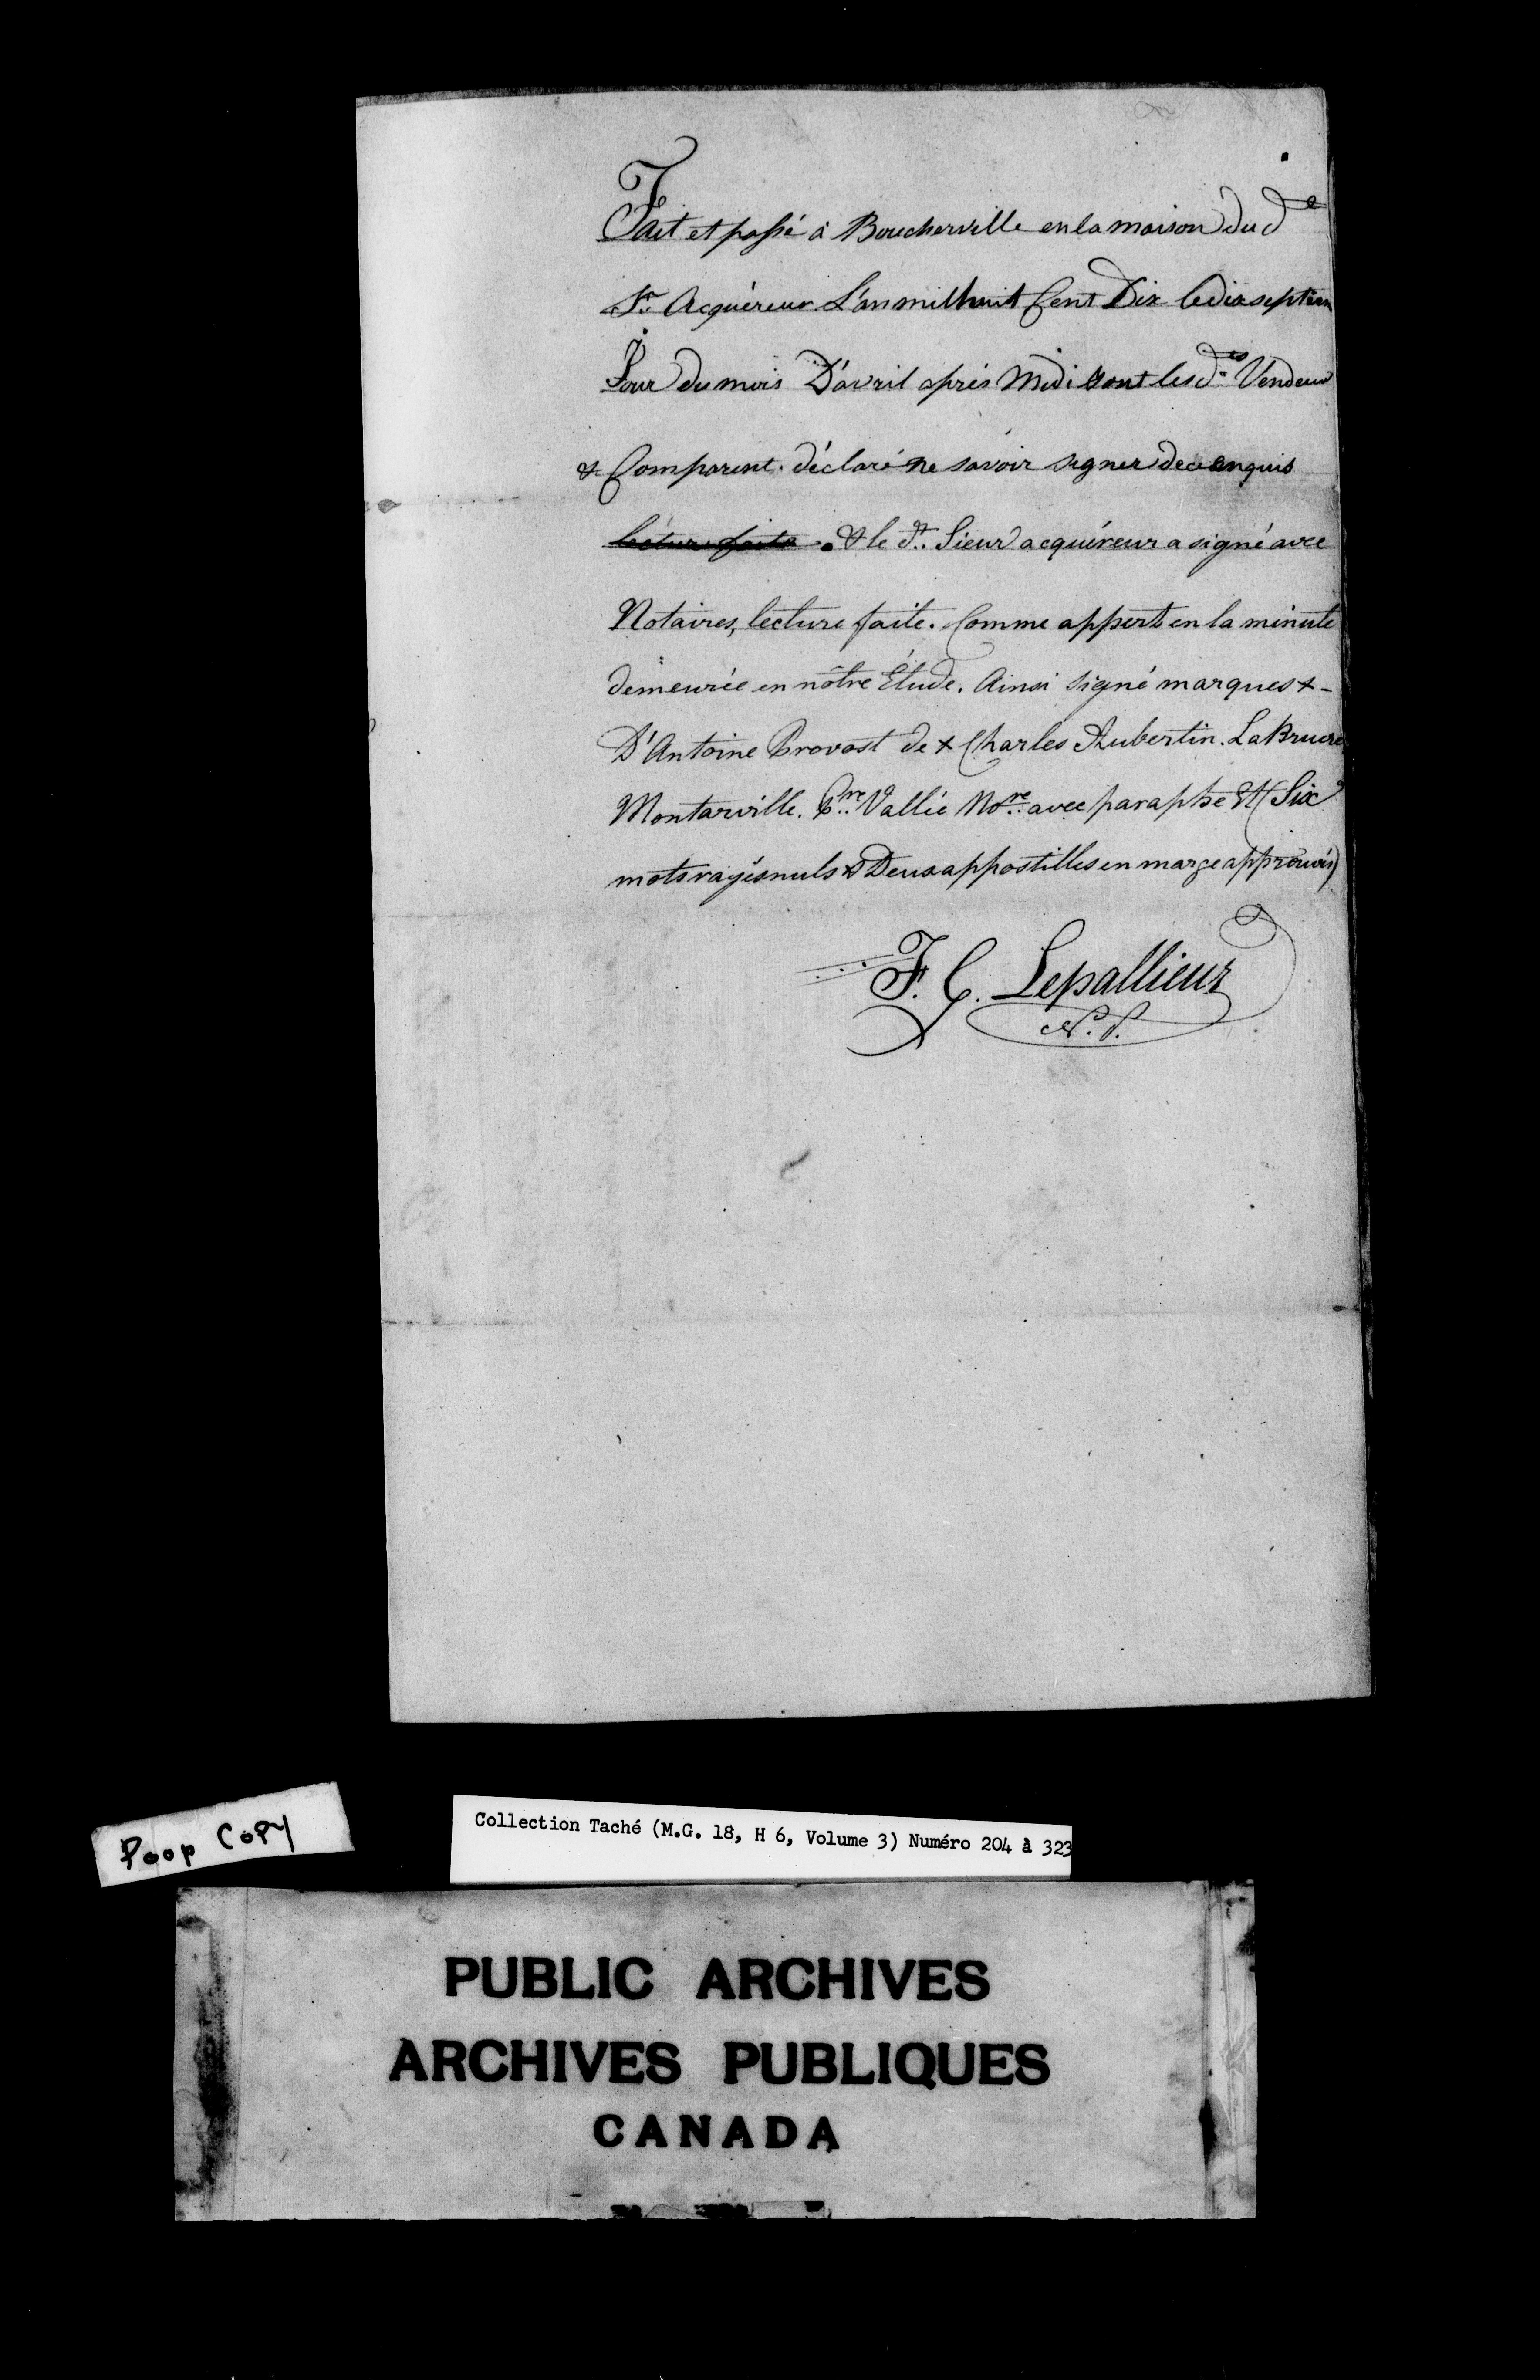 Fait et passé à Boucherville en la maison du d.
Sr. Acquéreur. L'an mil huit Cent Dix le dix septiem
Jour du mois D'avril après Midi & ont les d.es Vendeur
& Comparent. déclaré ne savoir signer de ce enquis
lecture faite. & le dt. Sieur acquéreur a signé avec
Notaires, lecture faite. Comme appert en la minute
demeurée en nôtre Étude. Ainsi signé marques + -
D'Antoine Provost de + Charles Aubertin. LaBruere
Montarville. Vallée No.re avec paraphe Et (Six
mots rayés nuls & Deux appostilles en marge approuvés)
F. C. Lepallieur
N. P.
Poop COPY
Collection Taché (M.G. 18, H 6, Volume 3) Numéro 204 à 323
PUBLIC ARCHIVES
ARCHIVES PUBLIQUES
CANADA